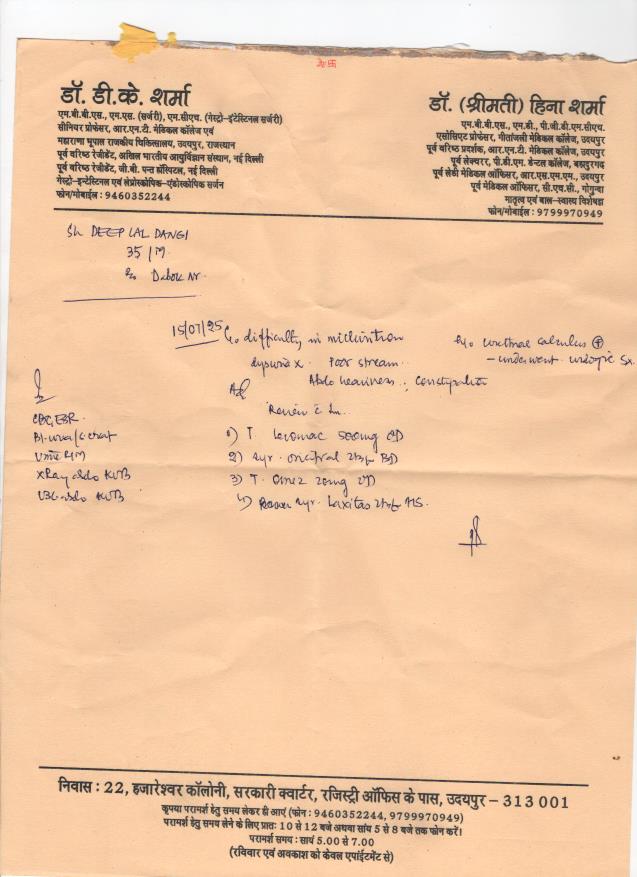 डॉ. डी.के. शर्मा
एम.बी.बी.एस., एम.एस. (सर्जरी), एम.सीएच. (गेस्ट्रो-इंटेस्टिनल सर्जरी)
सीनियर प्रोफेसर, आर.एन.टी. मेडिकल कॉलेज एवं
महाराणा भूपाल राजकीय चिकित्सालय, उदयपुर, राजस्थान
पूर्व वरिष्ठ रेजीडेंट, अखिल भारतीय आयुर्विज्ञान संस्थान, नई दिल्ली
पूर्व वरिष्ठ रेजीडेंट, जी.बी. पन्त हॉस्पिटल, नई दिल्ली
गेस्ट्रो-इन्टेस्टिनल एवं लेप्रोस्कोपिक-एंडोस्कोपिक सर्जन
फोन/मोबाईल : 9460352244
डॉ. (श्रीमती) हिना शर्मा
एम.बी.बी.एस., एम.डी., पी.जी.डी.एम.सीएच.
एसोसिएट प्रोफेसर, गीतांजली मेडिकल कॉलेज, उदयपुर
पूर्व वरिष्ठ प्रदर्शक, आर.एन.टी. मेडिकल कॉलेज, उदयपुर
पूर्व लेक्चरर, पी.डी.एम. डेन्टल कॉलेज, बहादुरगढ़
पूर्व लेडी मेडिकल ऑफिसर, आर.एस.एम.एम., उदयपुर
पूर्व मेडिकल ऑफिसर, सी.एच.सी., गोगुन्दा
मातृत्व एवं बाल-स्वास्थ्य विशेषज्ञ
फोन/मोबाईल : 9799970949
Sh DEEP LAL DANGI
35/M
Dabok
15/07/25 C/o difficulty in micturition
dysuria Poor stream
Abdo heaviness, Constipation
H/o urethral calculus +
- underwent urologic Sx.
Adv
CBC ESR
Bl-urea/S creat
Urine R/M
XRay abdo KUB
USG abdo KUB
1) T. Levomac 500mg OD
2) Syr. BD
3) T. Omez 20mg OD
4) Syr. Laxitas HS.
निवास : 22, हजारेश्वर कॉलोनी, सरकारी क्वार्टर, रजिस्ट्री ऑफिस के पास, उदयपुर – 313 001
कृपया परामर्श हेतु समय लेकर ही आएं (फोन : 9460352244, 9799970949)
परामर्श हेतु समय लेने के लिए प्रातः 10 से 12 बजे अथवा सायं 5 से 8 बजे तक फोन करें।
परामर्श समय : सायं 5.00 से 7.00
(रविवार एवं अवकाश को केवल एपाईंटमेंट से)